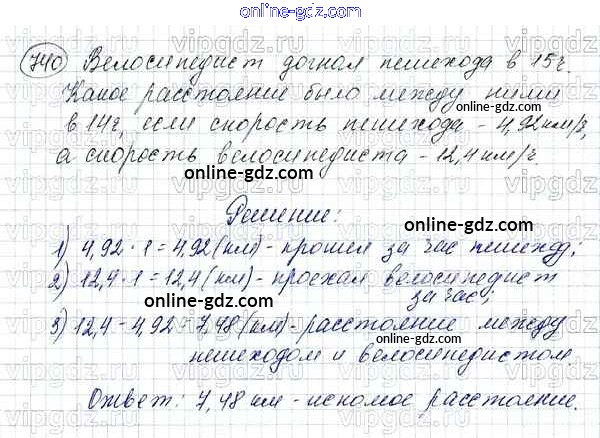 online-gdz.com
740 Велосипедист догнал пешехода в 15 ч.
Какое расстояние было между ними
online-gdz.com
в 14 ч, если скорость пешехода - 4,92 км/ч,
а скорость велосипедиста - 12,4 км/ч.
online-gdz.com
Решение:
online-gdz.com
1) 4,92 · 1 = 4,92 (км) - прошел за час пешеход;
online-gdz.com
2) 12,4 · 1 = 12,4 (км) - проехал велосипедист
за час;
online-gdz.com
3) 12,4 - 4,92 = 7,48 (км) - расстояние между
пешеходом и велосипедистом
online-gdz.com
Ответ: 7,48 км - искомое расстояние.
online-gdz.com